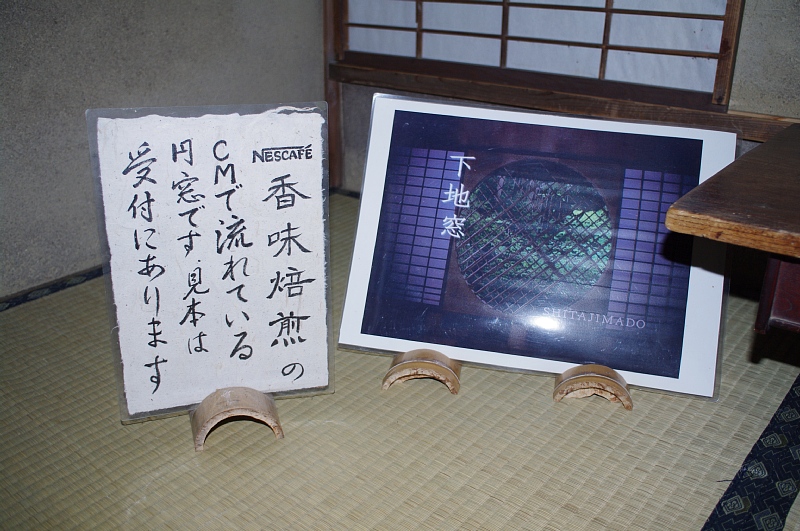 NESCAFÉ
香味焙煎の
CMで流れている
円窓です.見本は
受付にあります
下地窓
SHITAJIMADO